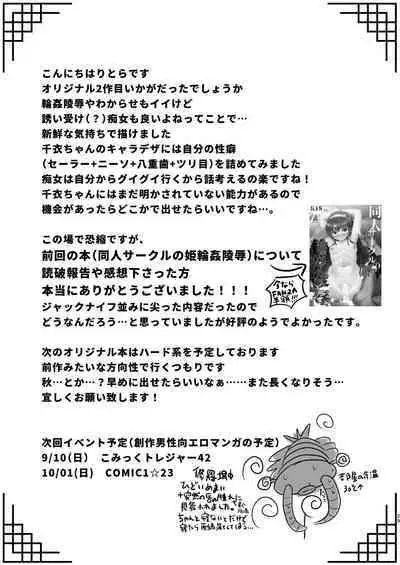 こんにちはりとらです
オリジナル2作目いかがだったでしょうか
輪姦陵辱やわからせもイイけど
誘い受け(?)痴女も良いよねってことで…
新鮮な気持ちで描けました
千衣ちゃんのキャラデザには自分の性癖
(セーラー+ニーソ+八重歯+ツリ目)を詰めてみました
痴女は自分からグイグイ行くから話考えるの楽ですね!
千衣ちゃんにはまだ明かされていない能力があるので
機会があったらどこかで出せたらいいですね…。
この場で恐縮ですが、
前回の本(同人サークルの姫輪姦陵辱)について
読破報告や感想下さった方
本当にありがとうございました!!!
ジャックナイフ並みに尖った内容だったので
どうなんだろう…と思っていましたが好評のようでよかったです。
今なら
FANZA
次のオリジナル本はハード系を予定しております
前作みたいな方向性で行くつもりです
秋…とか…?早めに出せたらいいなぁ……また長くなりそう…
宜しくお願い致します!
次回イベント予定(創作男性向エロマンガの予定)
9/10(日) こみっくトレジャー42
10/01(日) COMIC1☆23
修羅場中
ひどいめまい